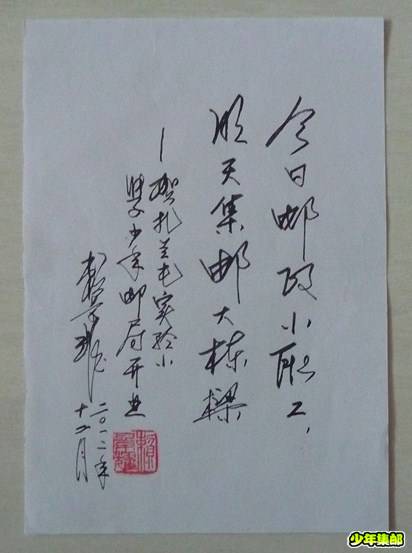 今日邮政小职工,
明天集邮大栋樑
—贺扎兰屯实验小
学少年邮局开业
二〇一二年
十二月
少年集邮